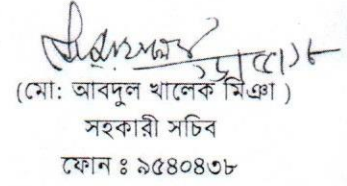 (মো: আবদুল খালেক মিঞা )
সহকারী সচিব
ফোন ঃ ৯৫৪০৪৩৮